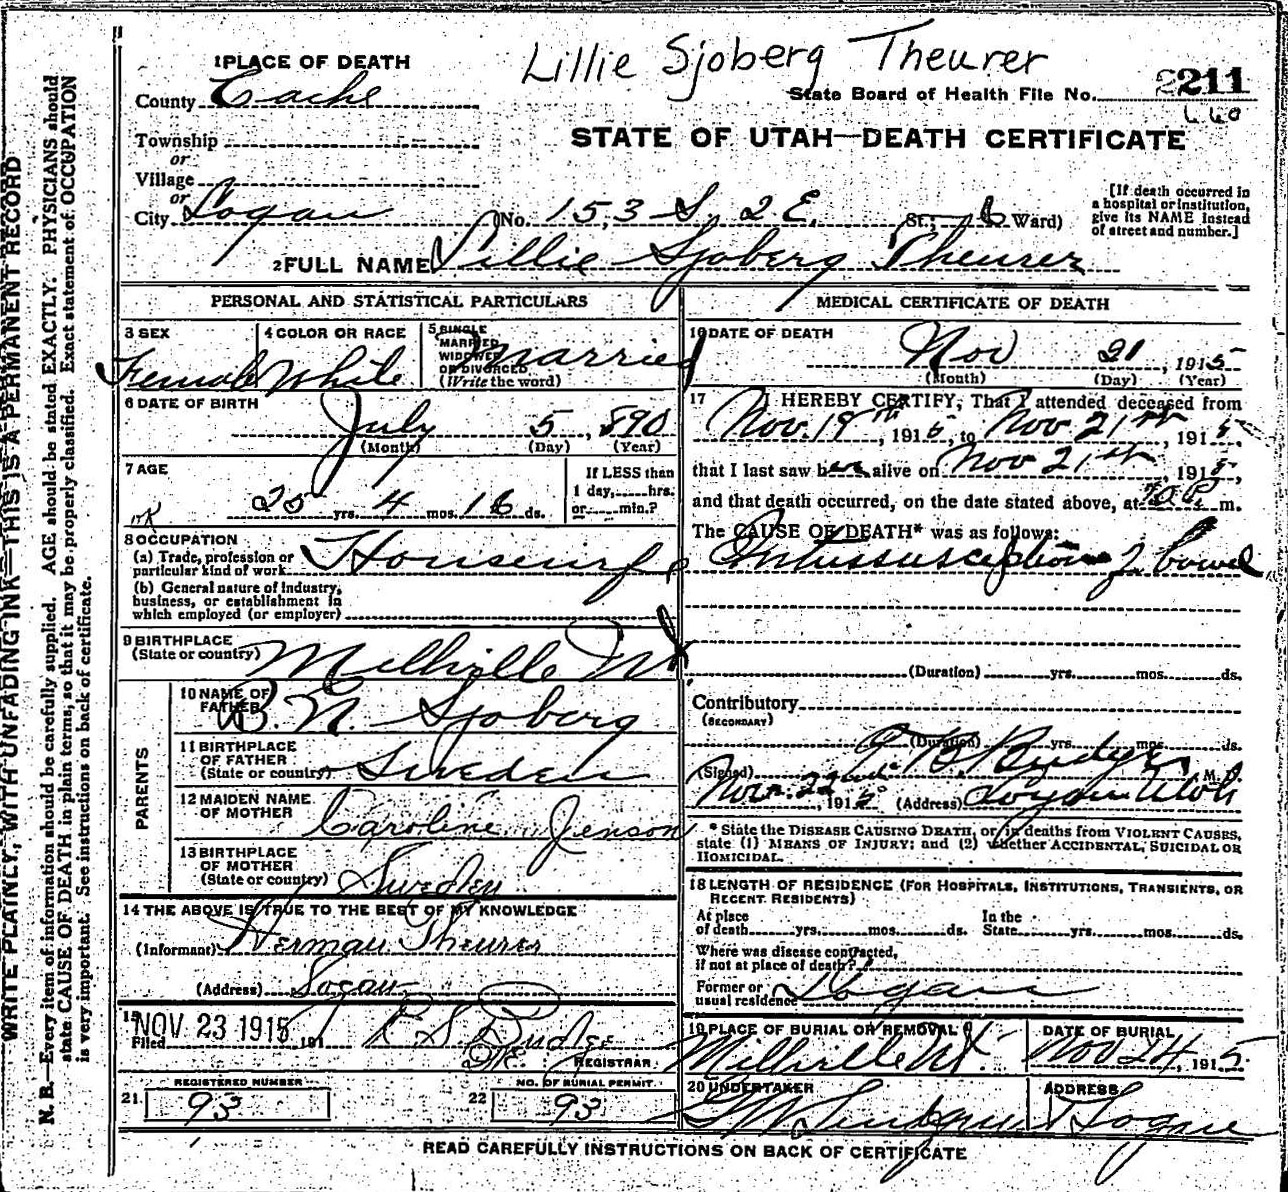 Lillie Sjoberg Theurer
1 PLACE OF DEATH
County Cache
State Board of Health File No. 2211
660
STATE OF UTAH—DEATH CERTIFICATE
Township
or
Village
or
City Logan No. 153 S. 2 E. St.; 6 Ward)
[If death occurred in a hospital or institution, give its NAME instead of street and number.]
2 FULL NAME Lillie Sjoberg Theurer
PERSONAL AND STATISTICAL PARTICULARS
3 SEX Female
4 COLOR OR RACE White
5 SINGLE MARRIED WIDOWED OR DIVORCED (Write the word) Married
6 DATE OF BIRTH
July 5, 890
(Month) (Day) (Year)
7 AGE
25 yrs. 4 mos. 16 ds.
If LESS than 1 day, hrs. or min.?
8 OCCUPATION
(a) Trade, profession or particular kind of work Housewife
(b) General nature of industry, business, or establishment in which employed (or employer)
9 BIRTHPLACE (State or country) Millville Ut
PARENTS
10 NAME OF FATHER Sjoberg
11 BIRTHPLACE OF FATHER (State or country) Sweden
12 MAIDEN NAME OF MOTHER Caroline Jenson
13 BIRTHPLACE OF MOTHER (State or country) Sweden
14 THE ABOVE IS TRUE TO THE BEST OF MY KNOWLEDGE
(Informant) Herman Theurer
(Address) Logan
15
Filed NOV 23 1915, 191
Budge
REGISTRAR
21 REGISTERED NUMBER 93
22 NO. OF BURIAL PERMIT 93
MEDICAL CERTIFICATE OF DEATH
16 DATE OF DEATH
Nov 21, 1915
(Month) (Day) (Year)
17 I HEREBY CERTIFY, That I attended deceased from
Nov. 19th, 1915, to Nov 21st, 1915,
that I last saw her alive on Nov 21st, 1915,
and that death occurred, on the date stated above, at m.
The CAUSE OF DEATH* was as follows:
Intussusception of bowel
(Duration) yrs. mos. ds.
Contributory
(SECONDARY)
(Duration) yrs. mos. ds.
(Signed) Budge, M. D.
Nov. 22nd, 1915 (Address) Logan Utah
* State the DISEASE CAUSING DEATH, or, in deaths from VIOLENT CAUSES,
state (1) MEANS OF INJURY; and (2) whether ACCIDENTAL, SUICIDAL OR
HOMICIDAL.
18 LENGTH OF RESIDENCE (FOR HOSPITALS, INSTITUTIONS, TRANSIENTS, OR
RECENT RESIDENTS)
At place of death yrs. mos. ds. In the State yrs. mos. ds.
Where was disease contracted,
if not at place of death?
Former or usual residence Logan
19 PLACE OF BURIAL OR REMOVAL Millville Ut.
DATE OF BURIAL Nov 24, 1915
20 UNDERTAKER
ADDRESS Logan
READ CAREFULLY INSTRUCTIONS ON BACK OF CERTIFICATE
WRITE PLAINLY, WITH UNFADING INK—THIS IS A PERMANENT RECORD
N. B.—Every item of information should be carefully supplied. AGE should be stated EXACTLY. PHYSICIANS should
state CAUSE OF DEATH in plain terms, so that it may be properly classified. Exact statement of OCCUPATION
is very important. See instructions on back of certificate.